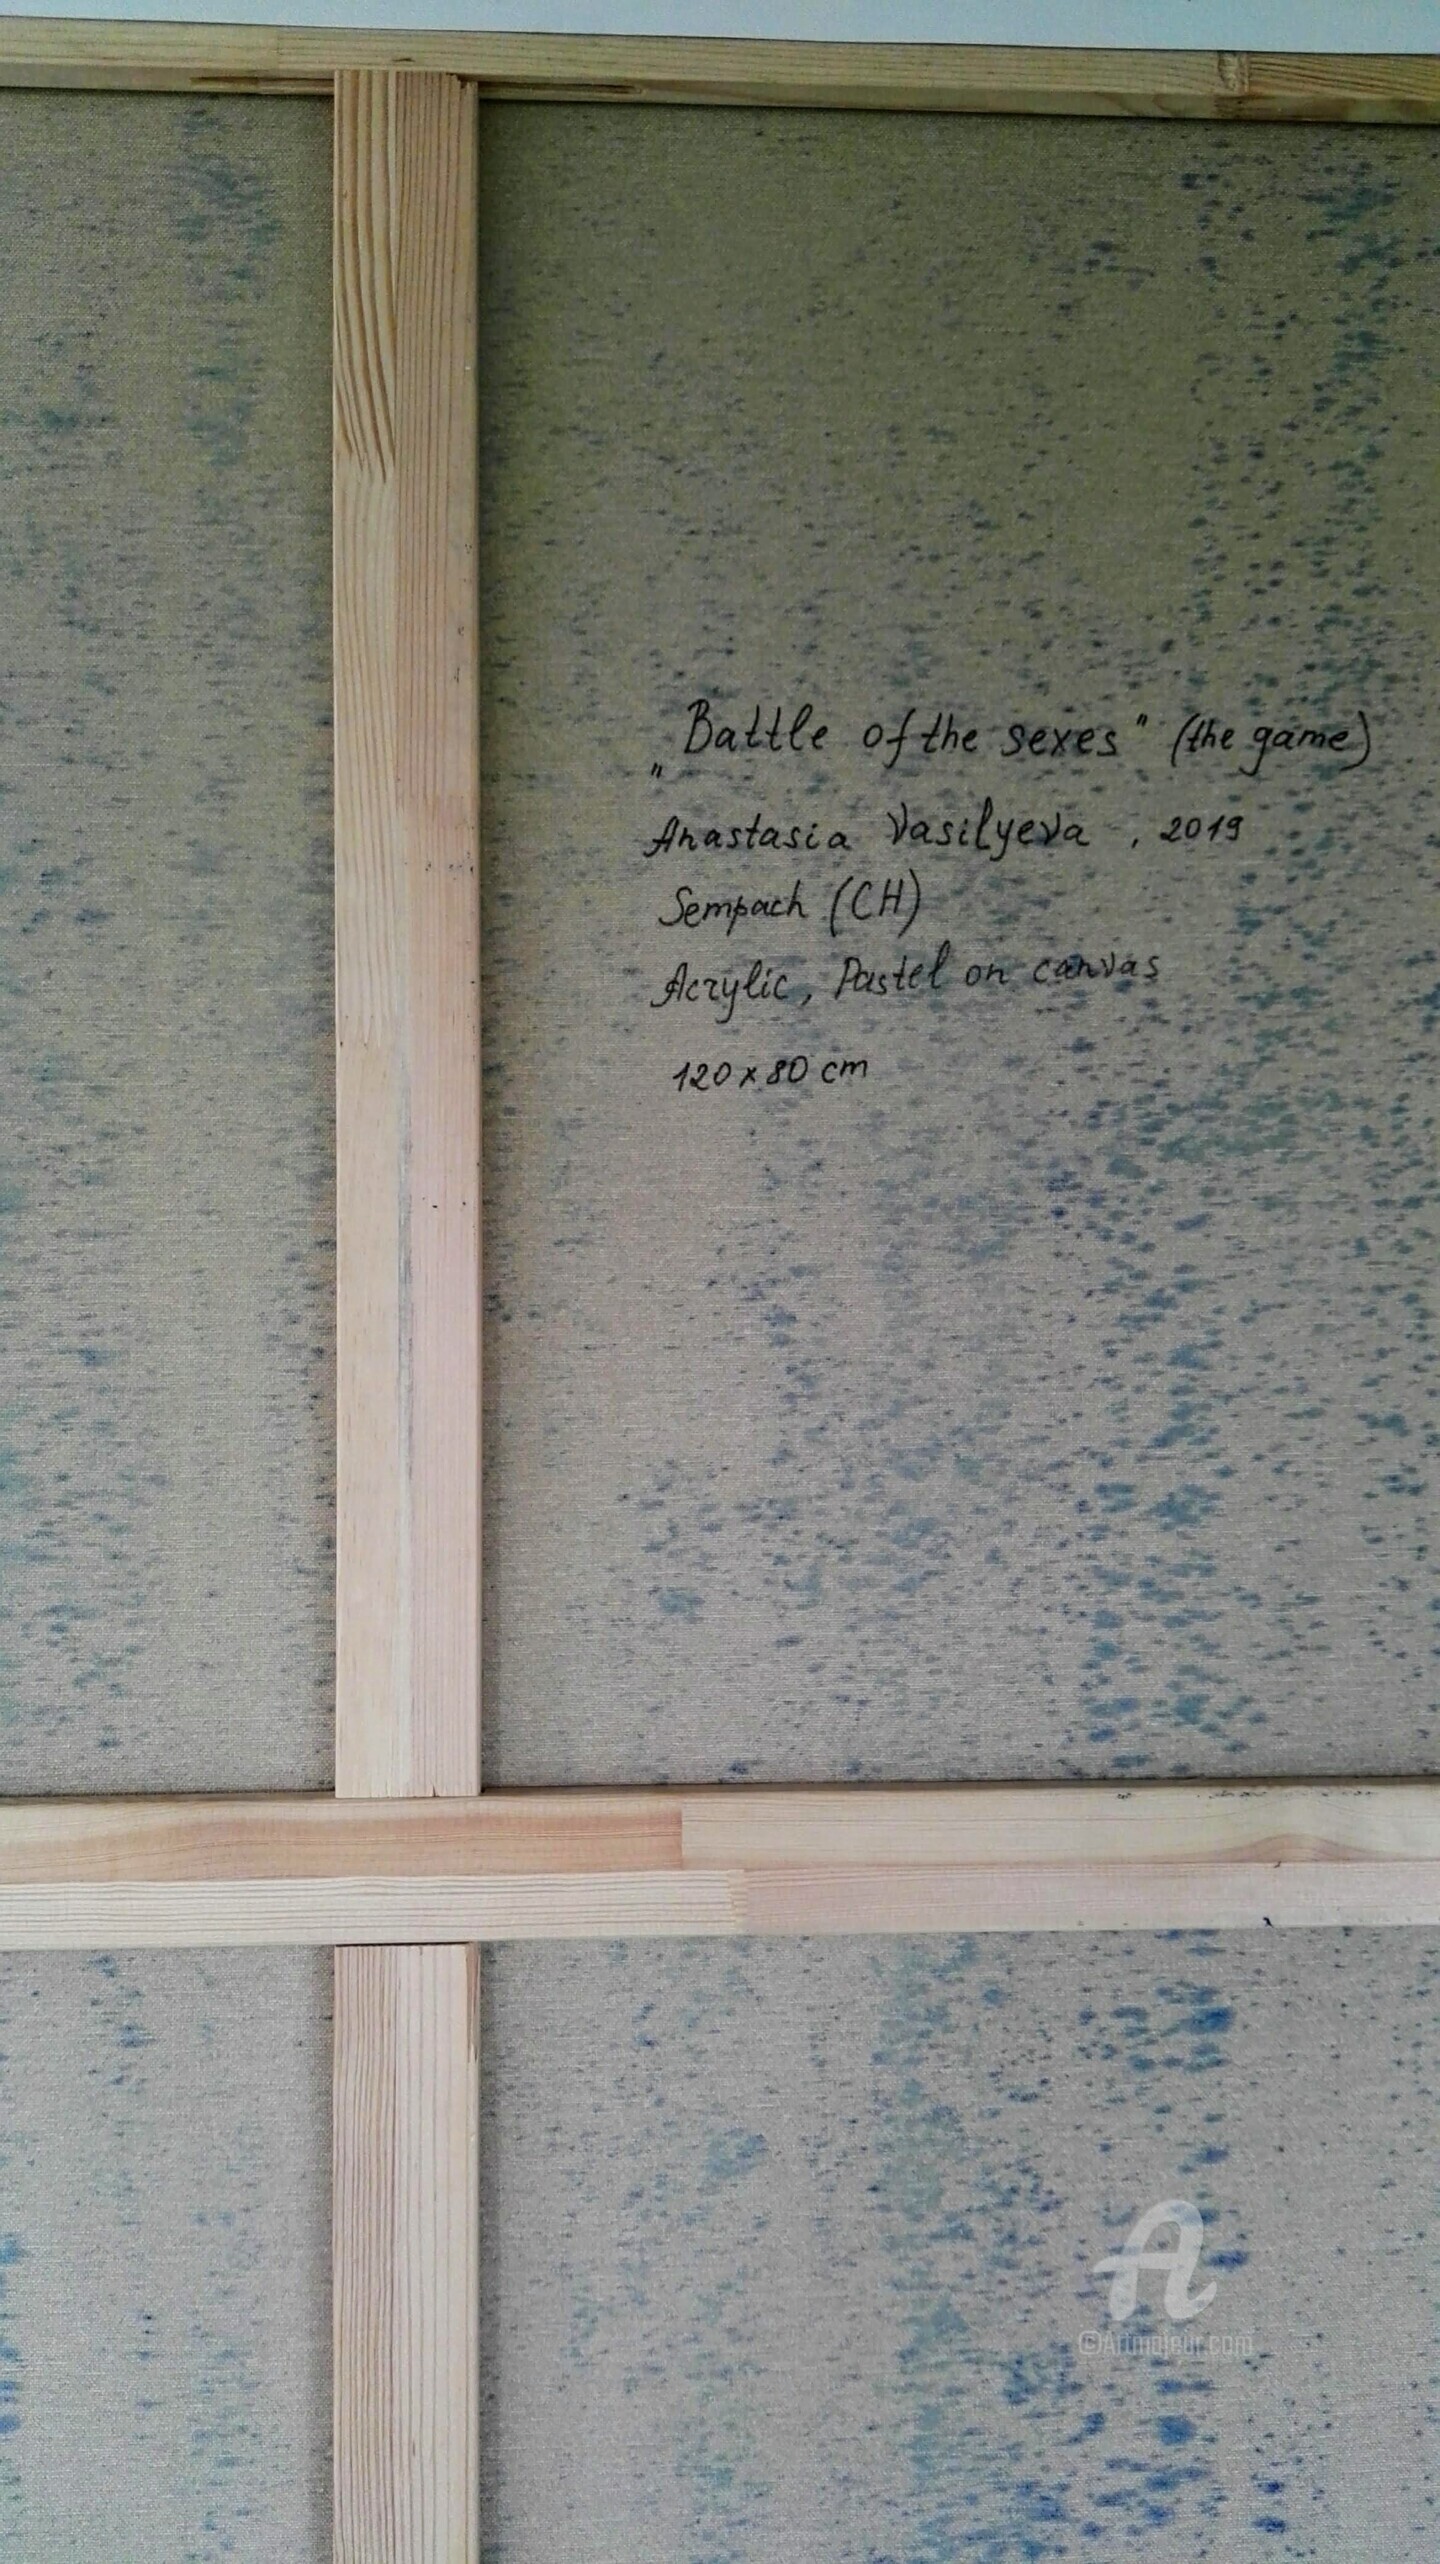 „Battle of the sexes" (the game)
Anastasia Vasilyeva, 2019
Sempach (CH)
Acrylic, Pastel on canvas
120x80 cm
A
©Artmajeur.com